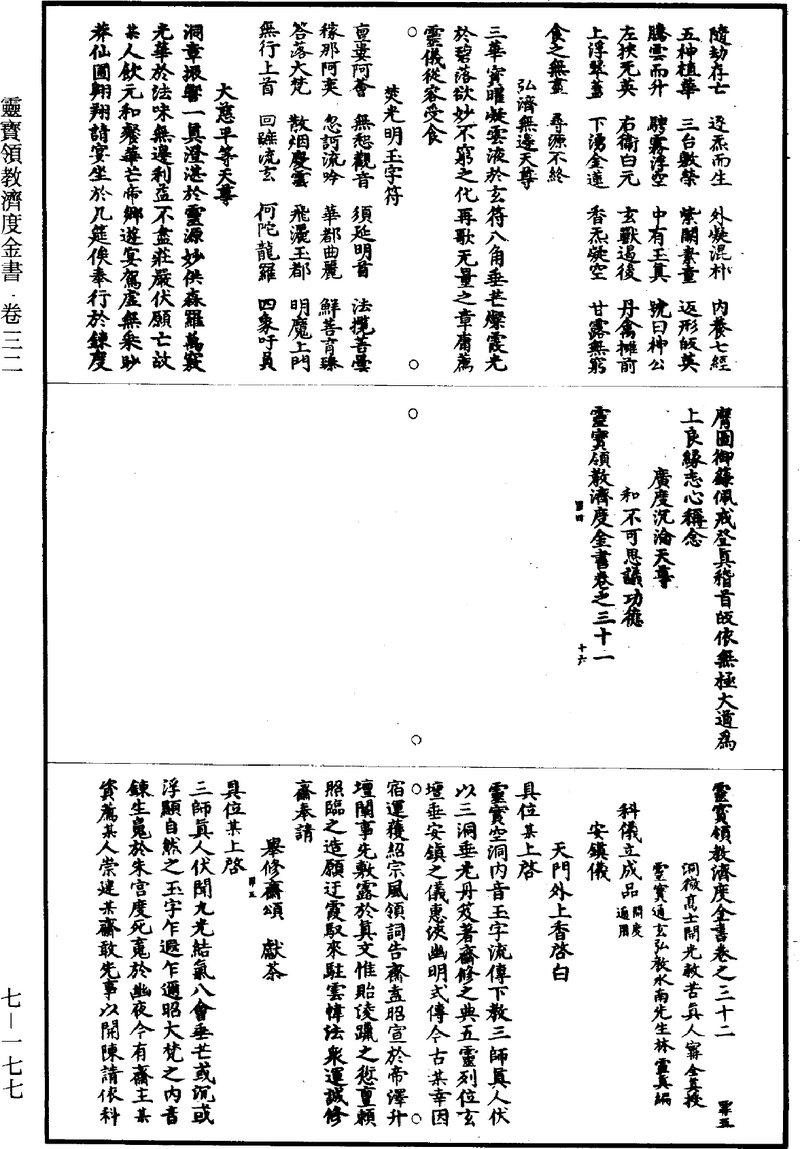 靈寶領教濟度金書·卷三二
七—一七七
隨劫存亡　逐炁而生　外凝混朴　內養七經
五神植華　三台敷榮　紫閣素童　返形皈英
騰雲而升　騁霧浮空　中有玉真　號曰神公
左挾无英　右衛白元　玄獸過後　丹禽攤前
上浮翠蓋　下湧金蓮　香炁凝空　甘露無窮
食之無盡　尋源不終
弘濟無邊天尊
三華寶曜凝雲液於玄符八角垂芒燦霞光
於碧落欲妙不窮之化再歌无量之章庸薦
靈儀從容受食
焚光明玉字符
亶婁阿薈　無惒觀音　須延明首　法攬菩曇
稼那阿奕　忽訶流吟　華都曲麗　鮮菩育臻
答落大梵　散烟慶雲　飛灑玉都　明魔上門
無行上首　回蹠流玄　何陀龍羅　四象吁員
大慈平等天尊
洞章振響一真澄湛於靈源妙供森羅萬竅
光華於法味無邊利益不盡莊嚴伏願亡故
某人飲元和餐華芒帝鄉遊宴駕虛無乘眇
莽仙圃翱翔請宴坐於几筵俟奉行於鍊度
膺圖御籙佩戒登真稽首皈依無極大道爲
上良緣志心稱念
廣度沉淪天尊
和　不可思議功德
靈寶領教濟度金書卷之三十一
罪四　十六
靈寶領教濟度金書卷之三十二　罪五
洞微高士開光救苦真人甯全真授
靈寶通玄弘教水南先生林靈真編
科儀立成品　開度通用
安鎮儀
天門外上香啓白
具位某上啓
靈寶空洞內音玉字流傳下教三師真人伏
以三洞垂光丹笈著齋修之典五靈列位玄
壇垂安鎮之儀惠浹幽明式傳今古某幸因
宿運獲紹宗風領詞告齋盍昭宣於帝澤升
壇闡事先敷露於真文惟貽陵躐之愆亶賴
照臨之造願迂霞馭來駐雲幃法衆運誠修
齋奉請
舉修齋頌　獻茶
罪五
具位某上啓
三師真人伏聞九光結氣八會垂芒或沉或
浮顯自然之玉字乍遐乍邇昭大梵之內音
鍊生䰟於朱宮度死䰟於幽夜今有齋主某
資薦某人崇建某齋敢先事以開陳請依科